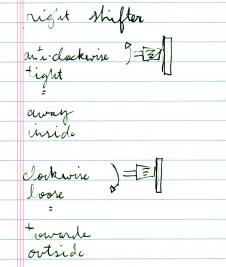 right shifter
anti-clockwise
tight
=
away
inside
clockwise
loose
=
towards
outside